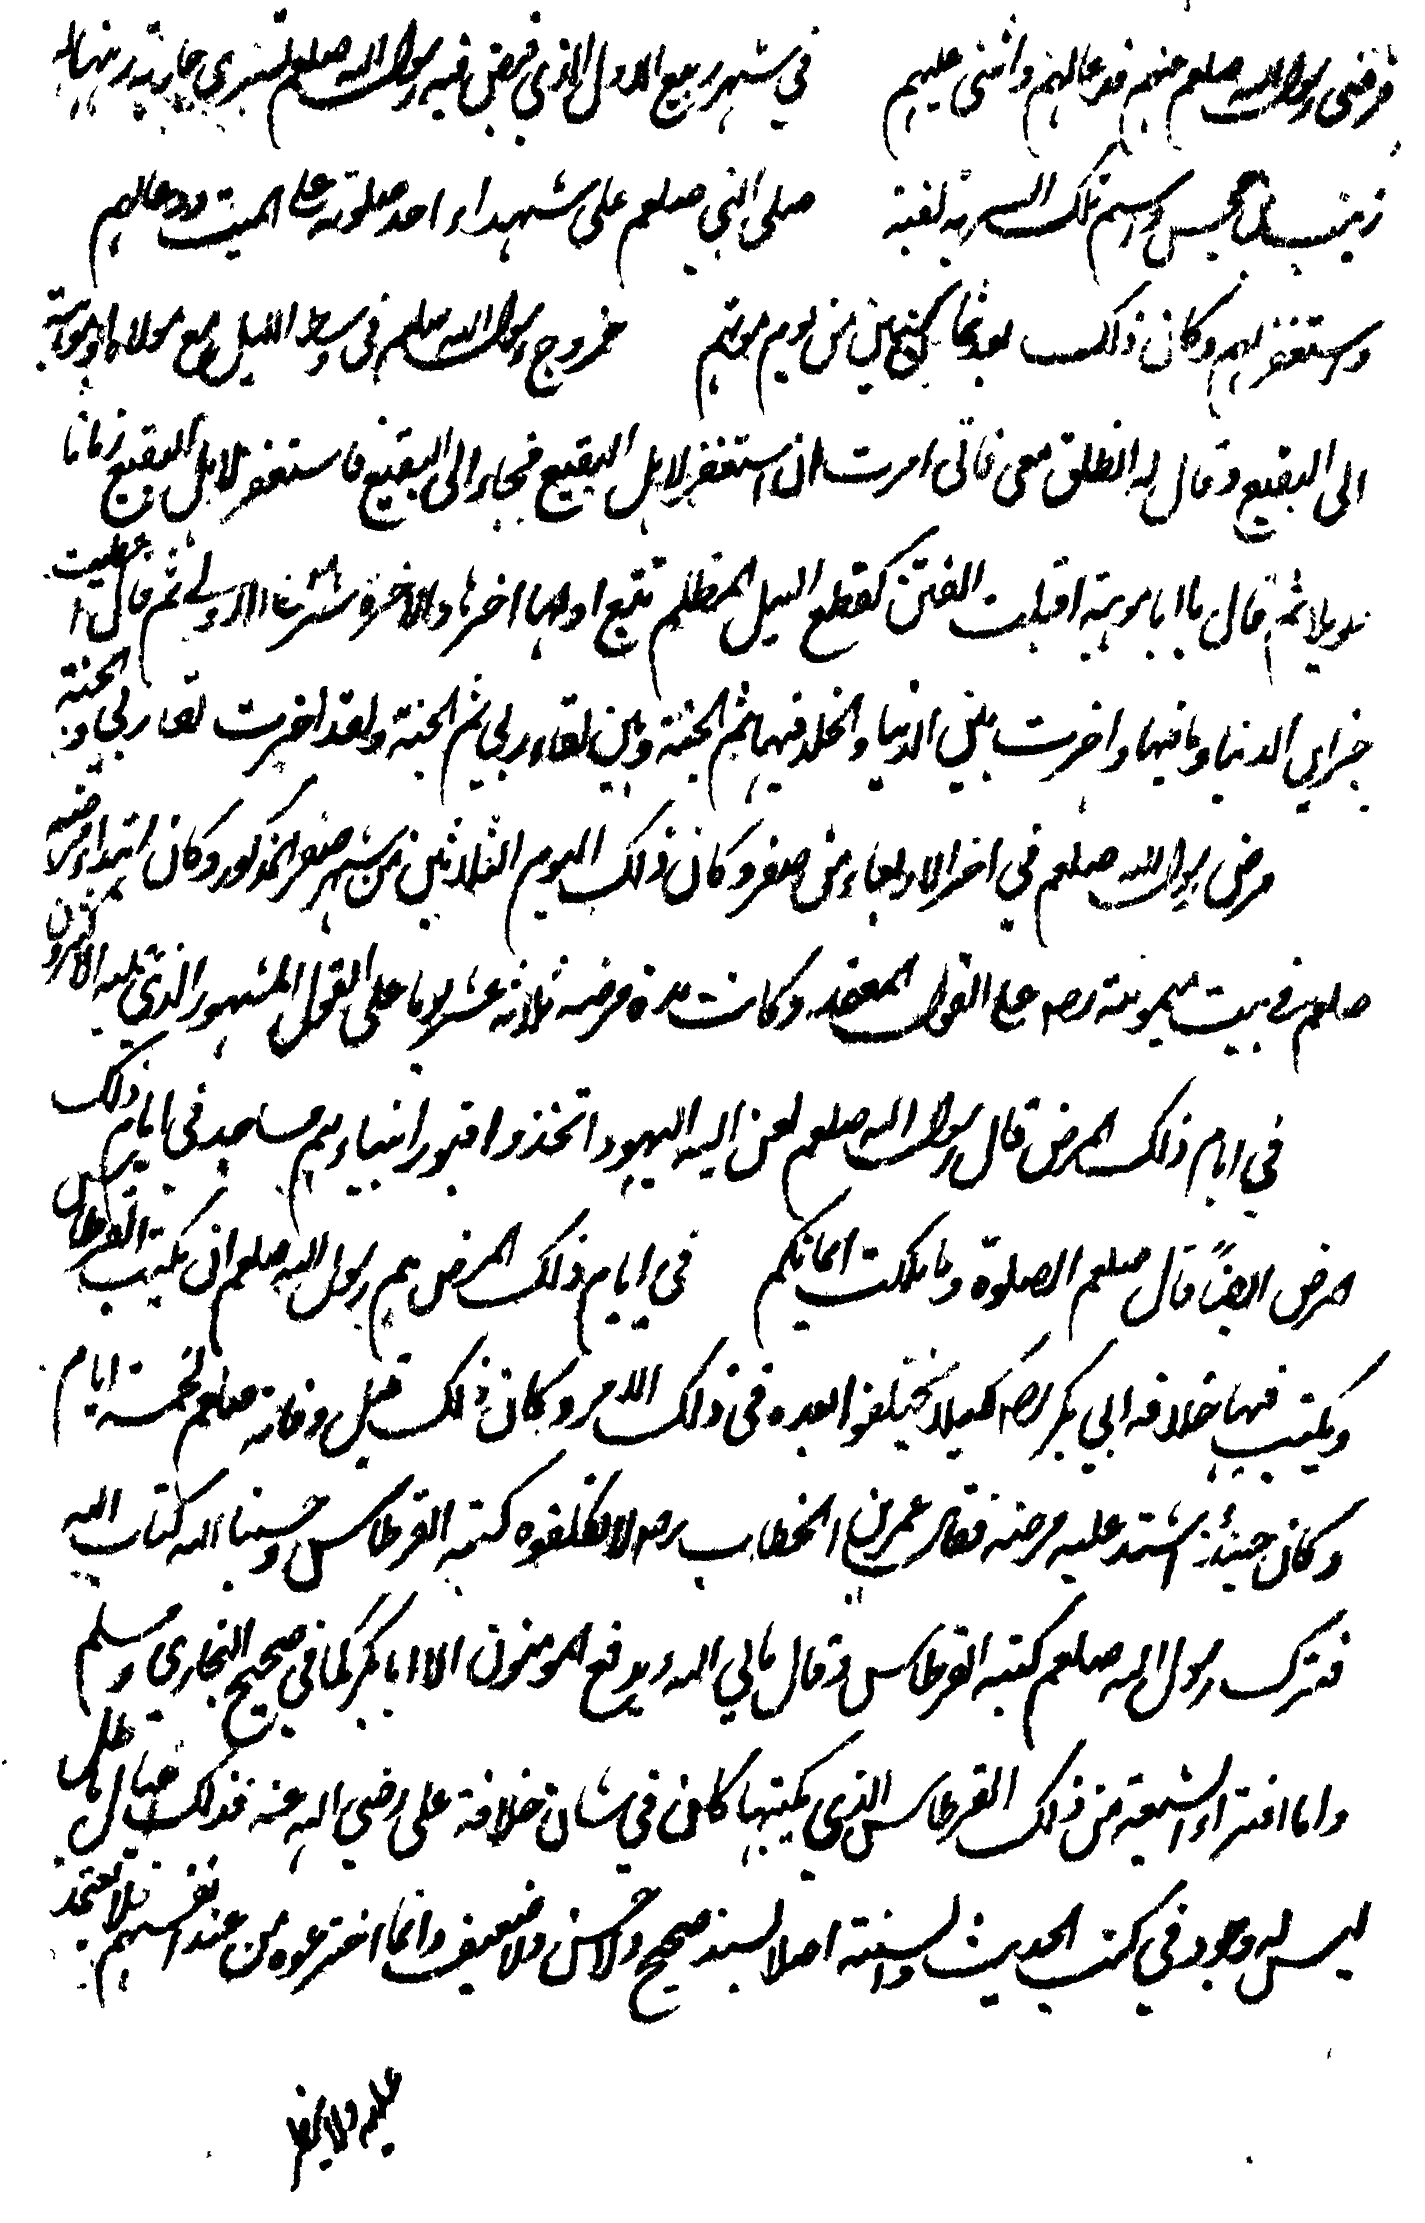 فرضى رسول الله صلعم عنهم فدعا لهم واثنى عليهم في شهر ربيع الاول الذي قبض فيه رسول الله صلعم تسرى جارية وهبتها له
زينب بنت جحش واسم تلك السرية نفيسة صلى النبي صلعم على شهداء احد صلوته على الميت ودعا لهم
واستغفر لهم وكان ذلك بعد ثمان سنين من يوم موتهم خروج رسول الله صلعم في وسط الليل مع مولاه ابو مويهبة
الى البقيع وقال له انطلق معي فاني امرت ان استغفر لاهل البقيع فجاء الى البقيع فاستغفر لاهل البقيع زمانا
طويلا ثم قال يا ابا مويهبة اقبلت الفتن كقطع الليل المظلم تتبع اولها اخرها والاخرة شر من الاولى ثم قال اعطيت
خزاين الدنيا وما فيها واخيرت بين الدنيا والخلد فيها ثم الجنة وبين لقاء ربي ثم الجنة ولقد اخترت لقاء ربي والجنة
مرض رسول الله صلعم في اخر الاربعاء من صفر وكان ذلك اليوم الثلاثين من شهر صفر المذكور وكان ابتداء مرضه
صلعم في بيت ميمونة رضه على القول المعتمد وكانت مدة مرضه ثلاثة عشر يوما على القول المشهور الذي عليه الاكثرون
في ايام ذلك المرض قال رسول الله صلعم لعن الله اليهود اتخذوا قبور انبياءهم مساجد في ايام ذلك
المرض ايضاً قال صلعم الصلوة وما ملكت ايمانكم في ايام ذلك المرض هم رسول الله صلعم ان يكتب القرطاس
ويكتب فيها خلافة ابي بكر رضه كيلا يختلفوا بعده في ذلك الامر وكان ذلك قبل وفاته صلعم بخمسة ايام
وكان حينئذ اشتد عليه مرضه فقال عمر بن الخطاب رضه لا تكلفوه كتبة القرطاس وحسبنا الله كتاب الله
فترك رسول الله صلعم كتبة القرطاس وقال يابي الله ويدفع المومنون الا ابا بكر كما في صحيح البخاري ومسلم
واما افتراء الشيعة من ذلك القرطاس الذي يكتبها كان في شان خلافة علي رضي الله عنه فذلك خيال باطل
ليس له وجود في كتب الحديث والسنة اصلا بسند صحيح ولا حسن ولا ضعيف وانما اخترعوه من عند انفسهم فلا تعتمد
عليه